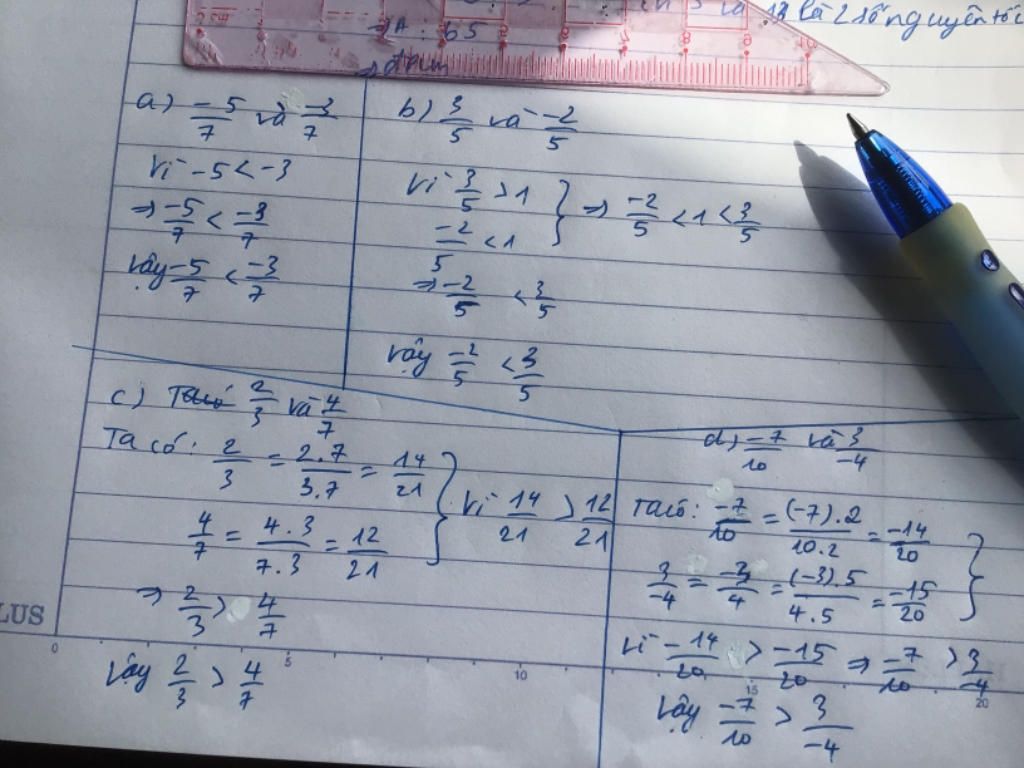 là 2 số nguyên tố c
⇒ A: 65
a) -5/7 và -3/7
Vì -5 < -3
⇒ -5/7 < -3/7
Vậy -5/7 < -3/7
b) 3/5 và -2/5
Vì 3/5 > 1
-2/5 < 1 } ⇒ -2/5 < 1 < 3/5
⇒ -2/5 < 3/5
Vậy -2/5 < 3/5
c) 2/3 và 4/7
Ta có: 2/3 = 2.7/3.7 = 14/21
4/7 = 4.3/7.3 = 12/21 } Vì 14/21 > 12/21
⇒ 2/3 > 4/7
Vậy 2/3 > 4/7
d) -7/10 và 3/-4
Ta có: -7/10 = (-7).2/10.2 = -14/20
3/-4 = -3/4 = (-3).5/4.5 = -15/20 }
Vì -14/20 > -15/20 ⇒ -7/10 > 3/-4
Vậy -7/10 > 3/-4
LUS
0 5 10 15 20